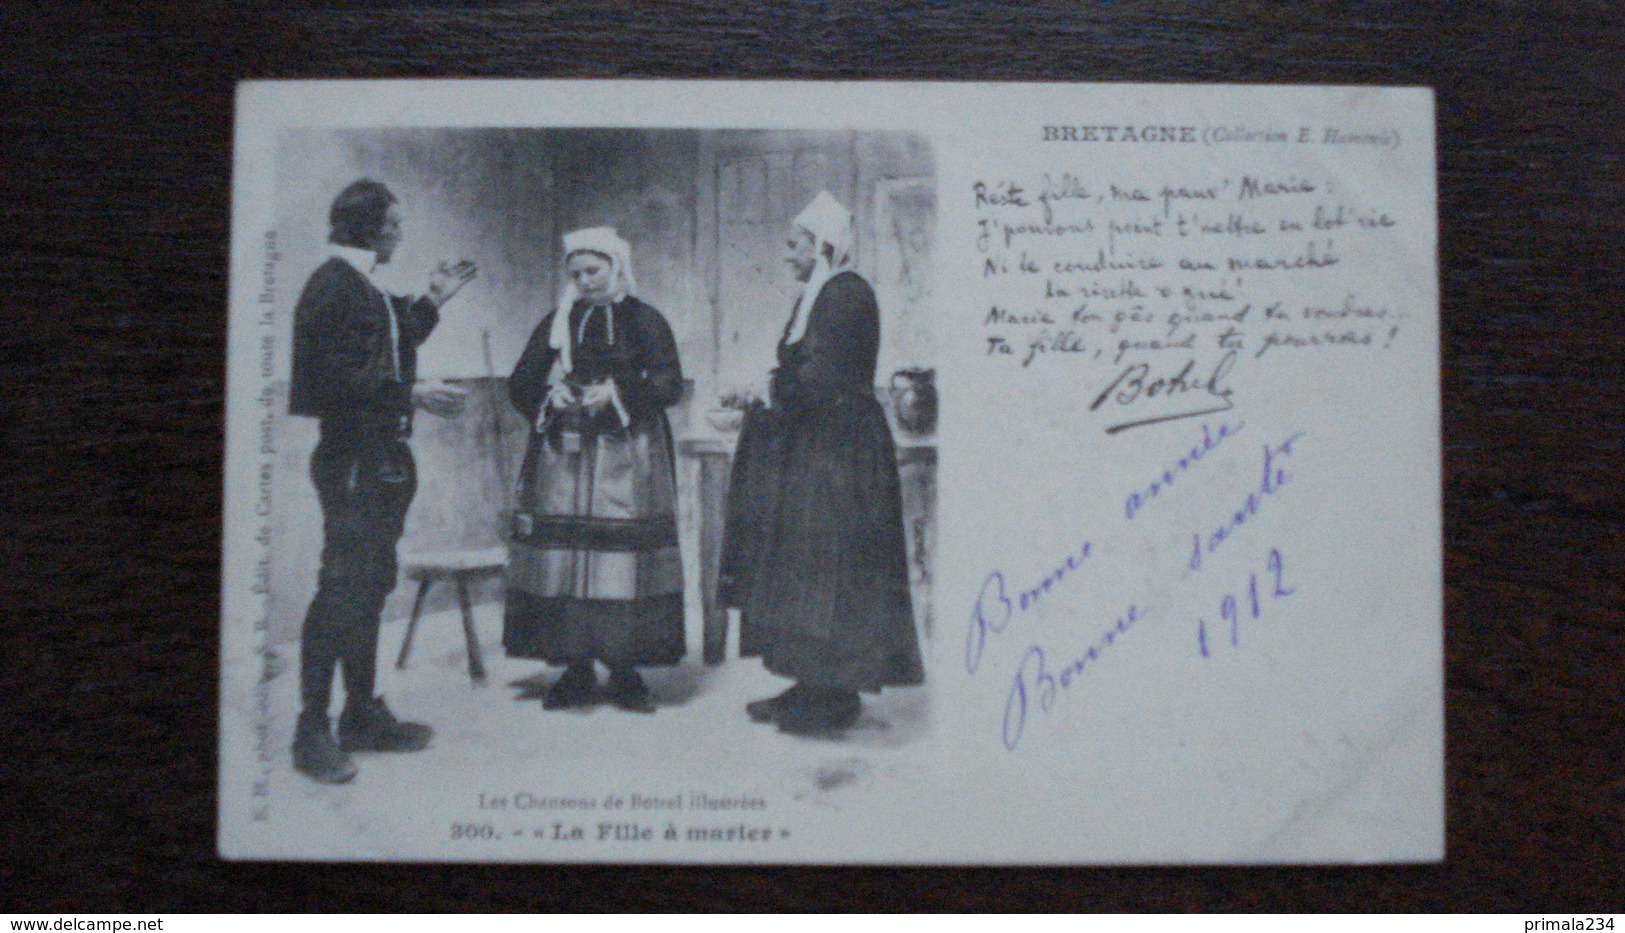 BRETAGNE (Collection E. Hamonic)
Réste fille, ma pauv' Marie :
J'pouvons point t'mettre en lot'rie
Ni te conduire au marché
La risette ô gué !
Marie ton gâs quand tu voudras...
Ta fille, quand tu pourras !
Botrel
Bonne année
Bonne santé
1912
E. H., phot. édit. de Cartes post. de toute la Bretagne
Les Chansons de Botrel illustrées
300. - « La Fille à marier »
http://www.delcampe.net
primala234